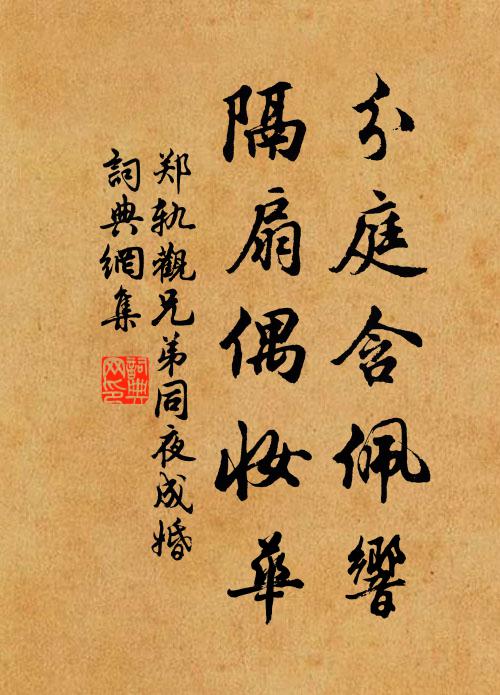 分庭含佩響
隔扇偶妆華
郑軌觀兄弟同夜成婚
詞典網集
詞典网印